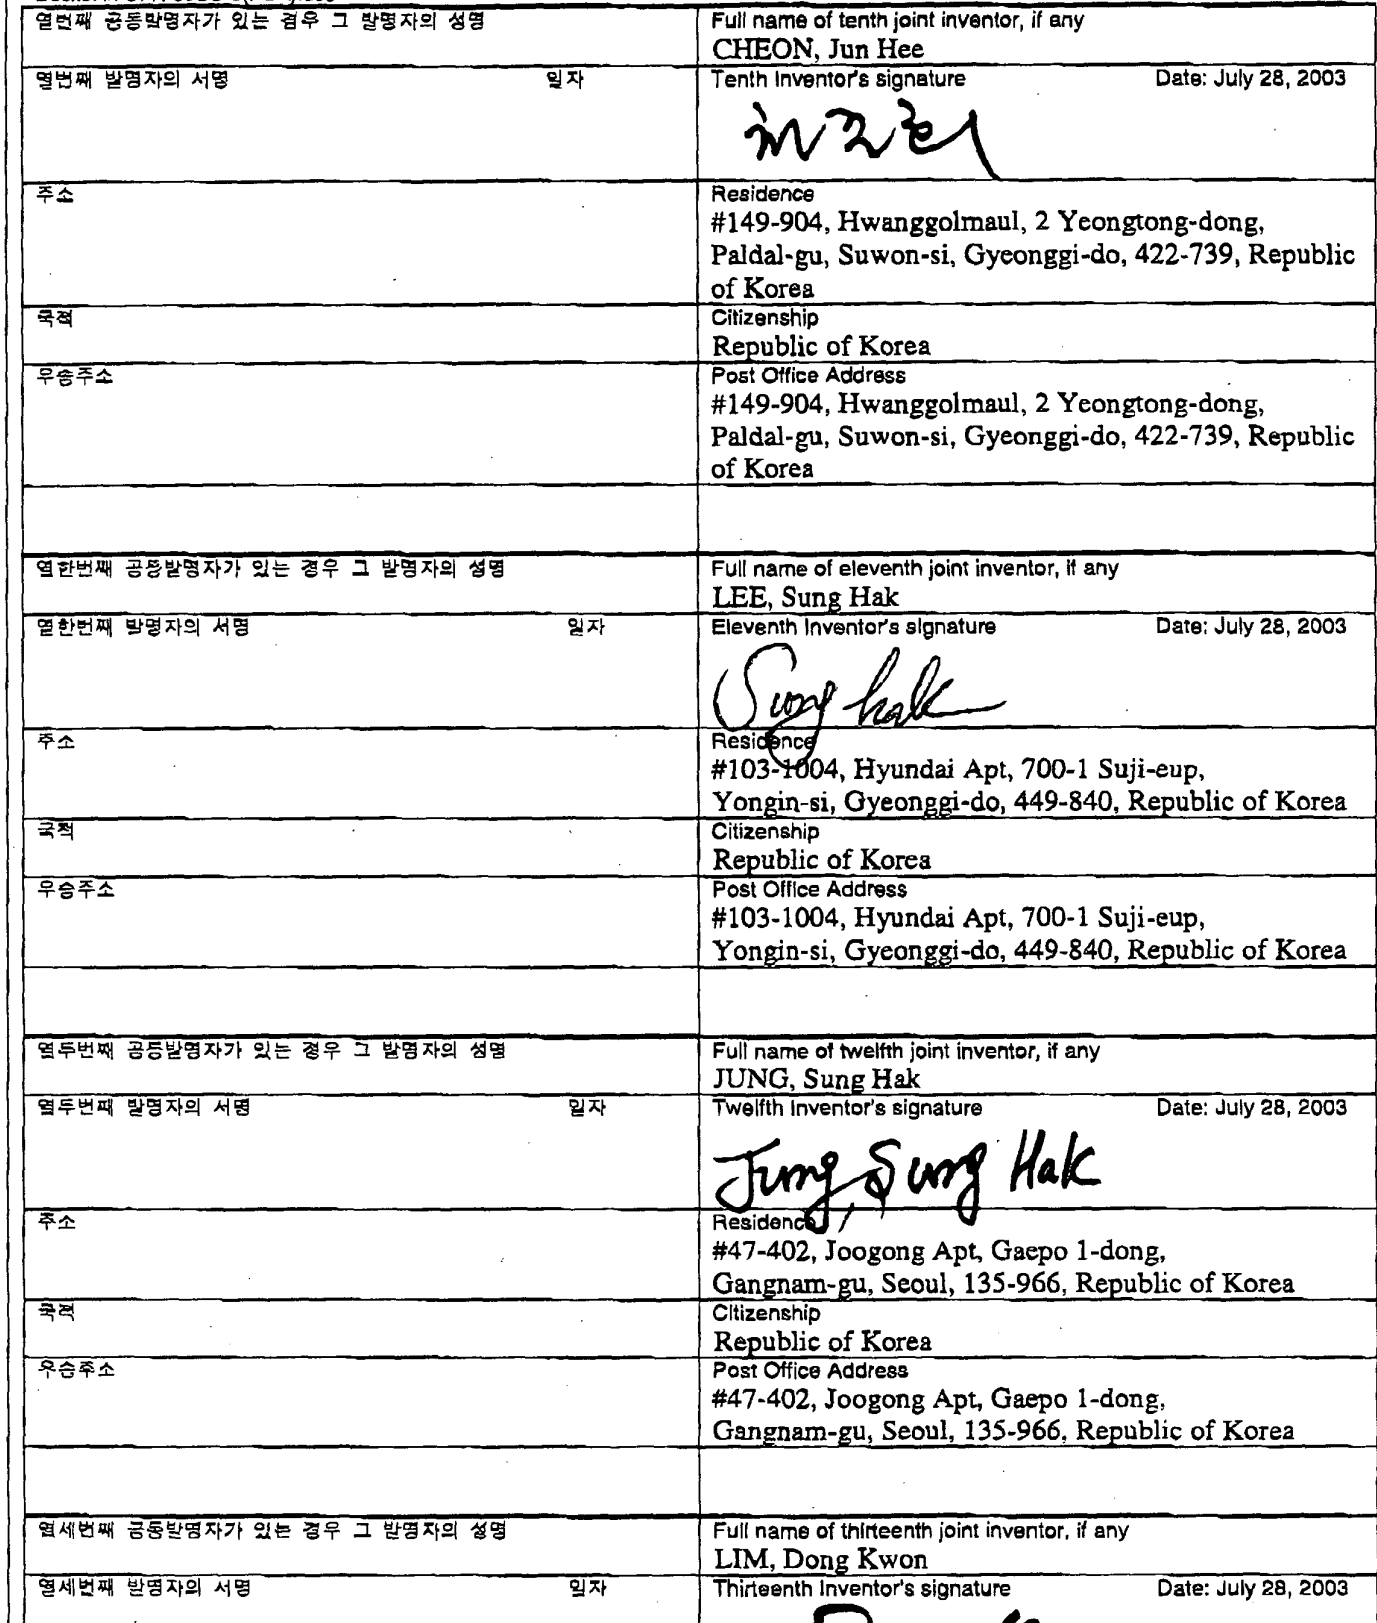 열번째 공동발명자가 있는 경우 그 발명자의 성명
Full name of tenth joint inventor, if any
CHEON, Jun Hee
열번째 발명자의 서명 일자
Tenth Inventor's signature Date: July 28, 2003
주소
Residence
#149-904, Hwanggolmaul, 2 Yeongtong-dong,
Paldal-gu, Suwon-si, Gyeonggi-do, 422-739, Republic
of Korea
국적
Citizenship
Republic of Korea
우송주소
Post Office Address
#149-904, Hwanggolmaul, 2 Yeongtong-dong,
Paldal-gu, Suwon-si, Gyeonggi-do, 422-739, Republic
of Korea
열한번째 공동발명자가 있는 경우 그 발명자의 성명
Full name of eleventh joint inventor, if any
LEE, Sung Hak
열한번째 발명자의 서명 일자
Eleventh Inventor's signature Date: July 28, 2003
Sung hak
주소
Residence
#103-1004, Hyundai Apt, 700-1 Suji-eup,
Yongin-si, Gyeonggi-do, 449-840, Republic of Korea
국적
Citizenship
Republic of Korea
우송주소
Post Office Address
#103-1004, Hyundai Apt, 700-1 Suji-eup,
Yongin-si, Gyeonggi-do, 449-840, Republic of Korea
열두번째 공동발명자가 있는 경우 그 발명자의 성명
Full name of twelfth joint inventor, if any
JUNG, Sung Hak
열두번째 발명자의 서명 일자
Twelfth Inventor's signature Date: July 28, 2003
Jung, Sung Hak
주소
Residence
#47-402, Joogong Apt, Gaepo 1-dong,
Gangnam-gu, Seoul, 135-966, Republic of Korea
국적
Citizenship
Republic of Korea
우송주소
Post Office Address
#47-402, Joogong Apt, Gaepo 1-dong,
Gangnam-gu, Seoul, 135-966, Republic of Korea
열세번째 공동발명자가 있는 경우 그 발명자의 성명
Full name of thirteenth joint inventor, if any
LIM, Dong Kwon
열세번째 발명자의 서명 일자
Thirteenth Inventor's signature Date: July 28, 2003